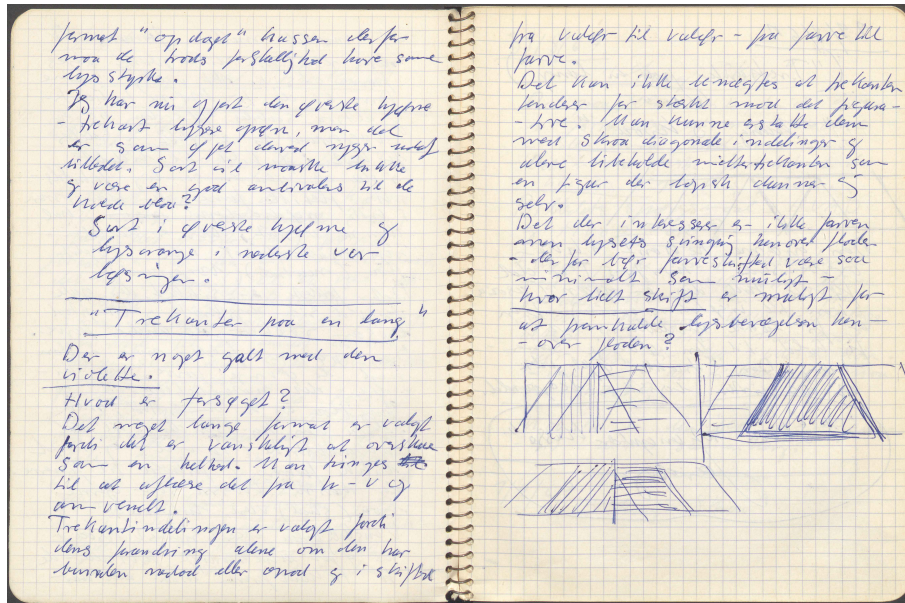 format "opdaget" kassen derfor
maa de trods forskellighed have samme
lysstyrke.
Jeg har nu gjort den øverste hjørne
- trekant lysere grøn, men det
er som øjet derved ryger ud af
billedet. Sort vil maaske trække
og være en god ambivalens til de
hvide blaa?
Sort i øverste hjørne og
lysorange i nederste ver
løsningen.
"Trekanter paa en lang"
Der er noget galt med den
violette.
Hvad er forsøget?
Det meget lange format er valgt
fordi det er vanskeligt at overskue
som en helhed. Man tvinges
til at aflæse det fra h-v og
omvendt.
Trekantindelingen er valgt fordi
dens forandring alene om den har
bunden nedad eller opad og i skiftet
fra valør til valør - fra farve til
farve.
Det kan ikke benægtes at trekanten
tenderer for stærkt mod det figura-
-tive. Man kunne erstatte dem
med skraa diagonale indelinger og
alene bibeholde midtertrekanten som
en figur der logisk danner sig
selv.
Det der interesserer er ikke farven
men lysets svingning henover floden
- derfor bør farveskiftet være saa
minimalt som muligt -
hvor lidt skift er muligt for
at fremholde lysbevægelsen hen-
-over floden?